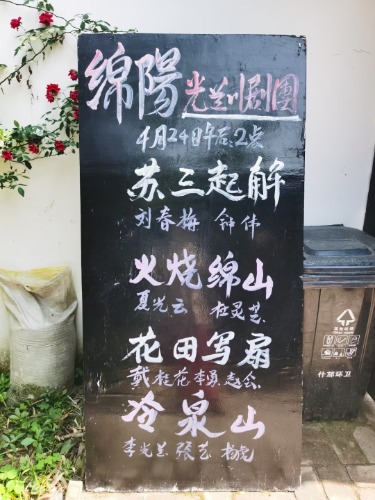 綿陽 光兰川剧團
4月24日午后:2点
苏三起解
刘春梅 钟伟
火烧绵山
夏光云 杜灵芝
花田写扇
戴桂花 李勇 志会
冷泉山
李光兰 张艺 杨虎
什邡环卫